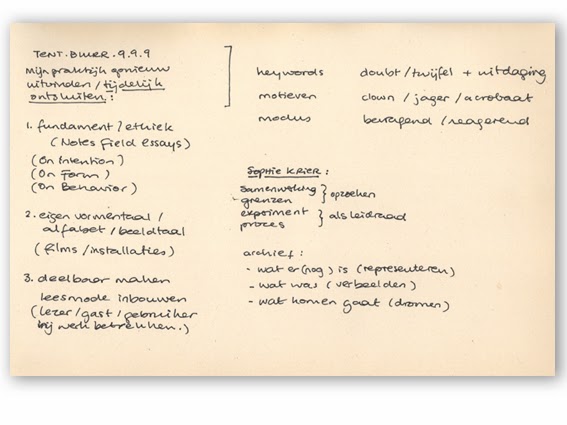 TENT. BMER. 9.9.9
Mijn praktijk opnieuw
uitvinden / tijdelijk
ontsluiten :
1. fundament / ethiek
(Notes Field essays)
(On Intention)
(On Form)
(On Behavior)
2. eigen vormentaal /
alfabet / beeldtaal
(films / installaties)
3. deelbaar maken
leesmode inbouwen
(lezer / gast / gebruiker
bij werk betrekken.)
keywords doubt / twijfel + uitdaging
motieven clown / jager / acrobaat
modus bevragend / reagerend
Sophie KRIER :
samenwerking
grenzen } opzoeken
experiment
proces } als leidraad
archief :
- wat er (nog) is (representeren)
- wat was (verbeelden)
- wat komen gaat (dromen)